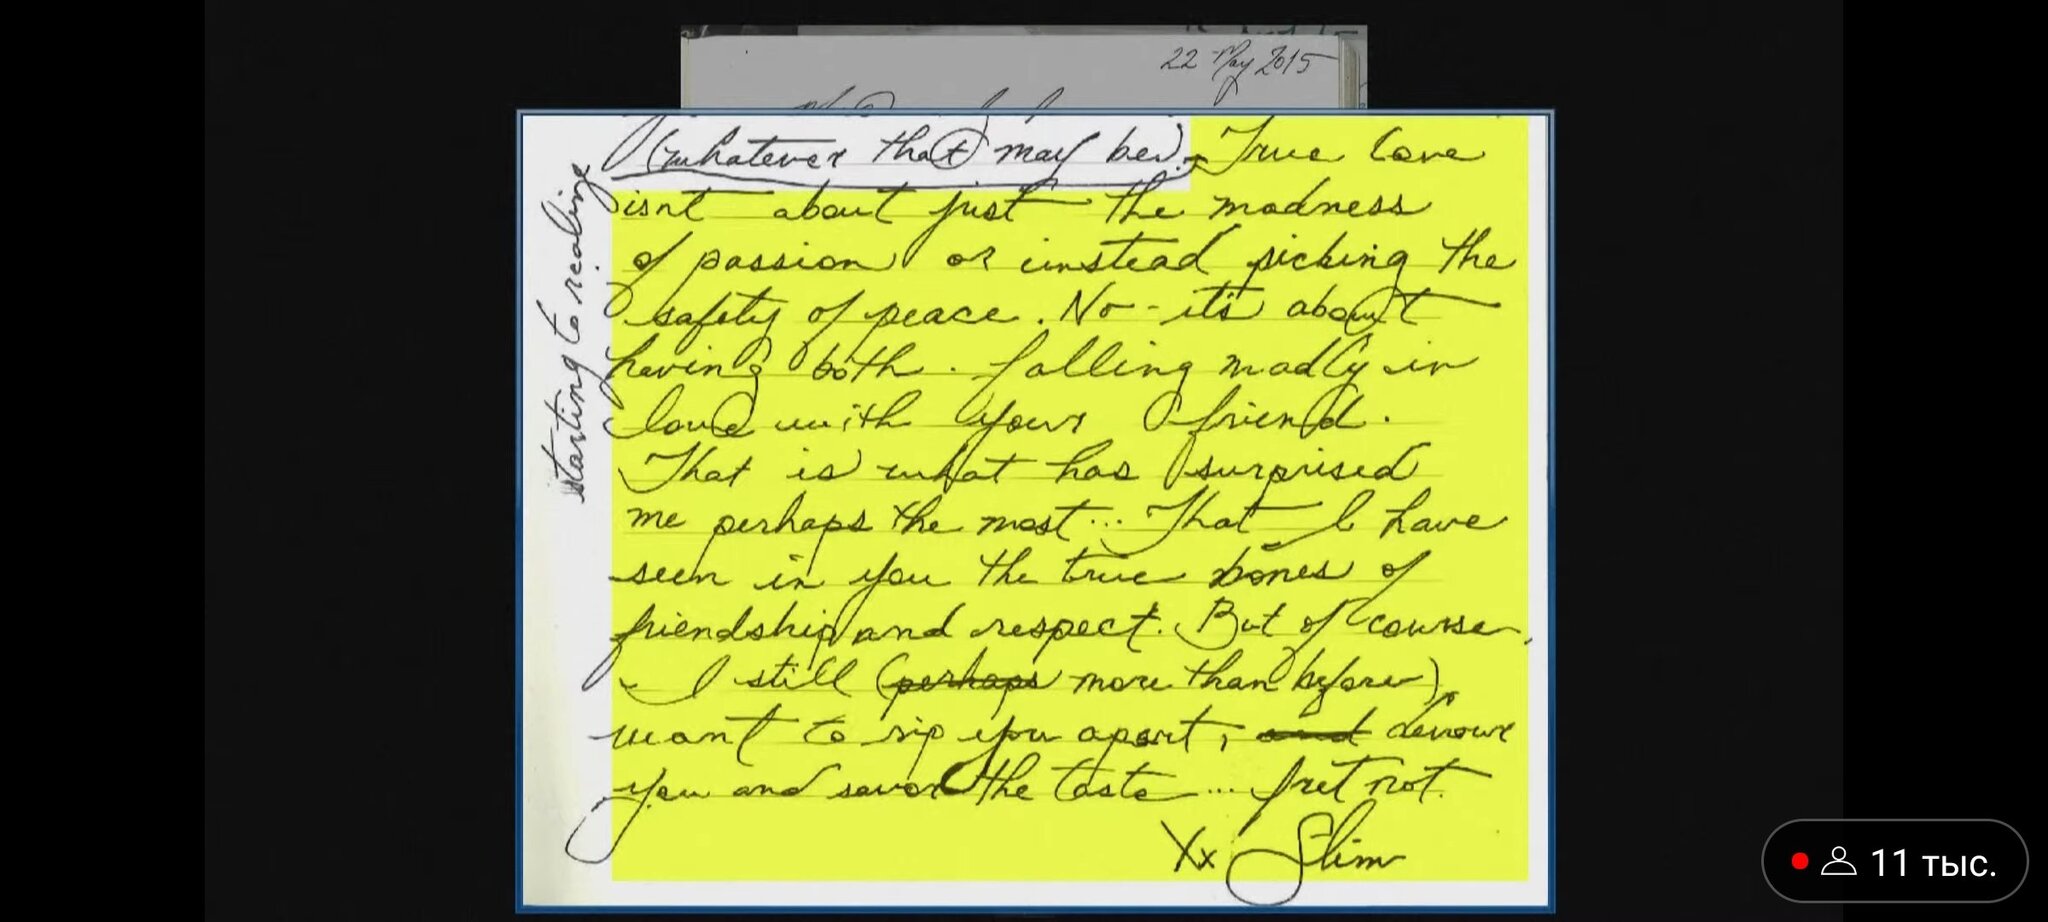 22 May 2015
(whatever that may be). True love
isnt about just the madness
of passion or instead picking the
safety of peace. No - it's about
having both. falling madly in
love with your friend.
That is what has surprised
me perhaps the most... That I have
seen in you the true bones of
friendship and respect. But of course,
I still (perhaps more than before)
want to rip you apart, and devour
you and savor the taste ... fret not.
Xx Slim
starting to realize
11 тыс.